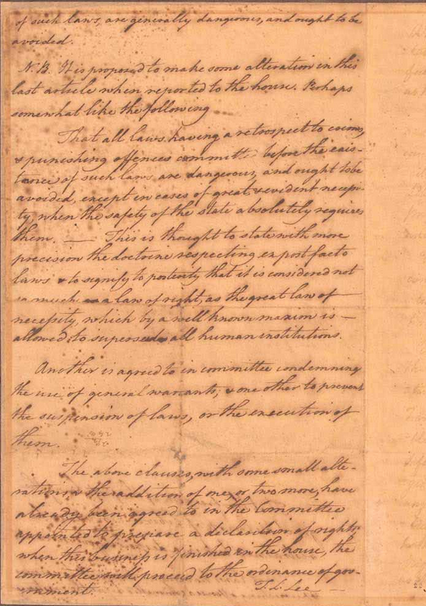 of such laws, are generally dangerous, and ought to be
avoided.
N.B. It is proposed to make some alteration in this
last article when reported to the house. Perhaps
somewhat like the following
That all laws having a retrospect to crimes,
& punishing offences committed before the exis-
tence of such laws are dangerous, and ought to be
avoided, except in cases of great, & evident necessi-
ty, when the safety of the state absolutely requires
them. — This is thought to state with more
precision the doctrine respecting ex post facto
laws & to signify to posterity that it is considered not
so much as a law of right, as the great law of
necessity, which by a well known maxim is —
allowed to supersede all human institutions.
Another is agreed to in committee condemning
the use of general warrants; & one other to prevent
the suspension of laws, or the execution of
them.
The above clauses, with some small alte-
rations, & the addition of one, or two more, have
already been agreed to in the Committee
appointed to prepare a declaration of rights;
when this business is finished in the house, the
committee will proceed to the ordinance of gov-
ernment.
T. L. Lee